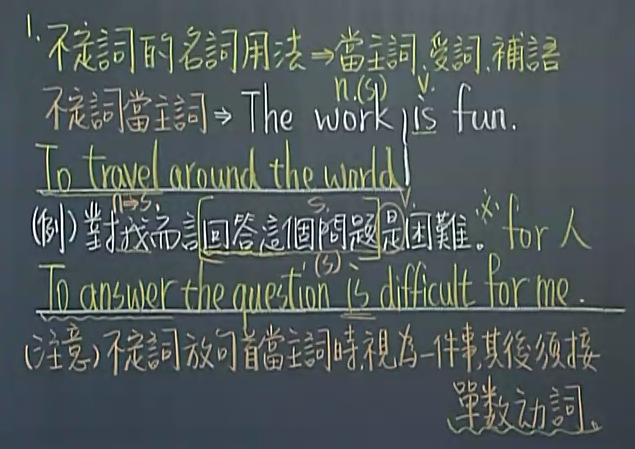 1. 不定詞的名詞用法⇒當主詞、受詞、補語
n.(s) v.
不定詞當主詞⇒ The work is fun.
To travel around the world
n⇒s. s. v
(例)對我而言[回答這個問題]是困難。※ for 人
(s)
To answer the question is difficult for me.
(注意)不定詞放句首當主詞時,視為一件事,其後須接
單数动詞。